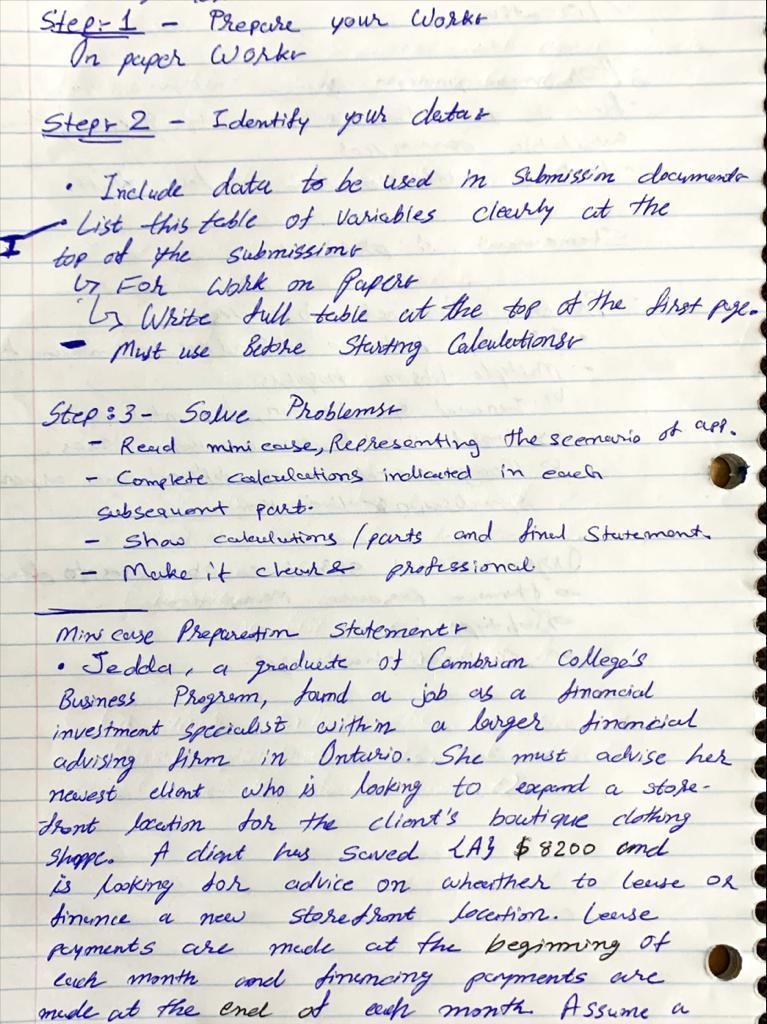 Step:-1 - Prepare your Work
On paper Work

Step 2 - Identify your data

• Include data to be used in submission document
• List this table of variables clearly at the
top of the submission
↳ For Work on Paper
↳ Write full table at the top of the first page.
- Must use Before Starting Calculations

Step:3 - Solve Problems
- Read mini case, Representing the scenario of app.
- Complete calculations indicated in each
subsequent part.
- Show calculations / parts and final Statement.
- Make it clear & professional

Mini case Preparation Statement
• Jedda, a graduate of Cambrian College's
Business Program, found a job as a financial
investment specialist within a larger financial
advising firm in Ontario. She must advise her
newest client who is looking to expand a store-
front location for the client's boutique clothing
Shoppe. A client has saved {A} $8200 and
is looking for advice on wheather to lease or
finance a new storefront location. Lease
payments are made at the beginning of
each month and financing payments are
made at the end of each month. Assume a